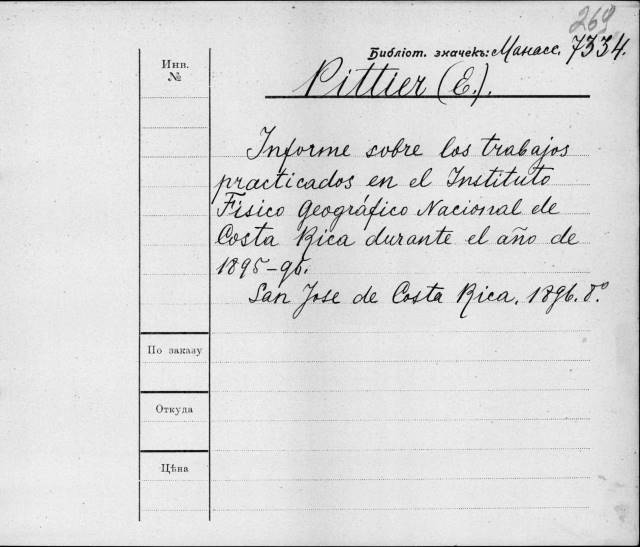 269
Библіот. значекъ: Манасс. 7334.
Инв.
№
Pittier (E.).
Informe sobre los trabajos
practicados en el Instituto
Fisico Geográfico Nacional de
Costa Rica durante el año de
1895-96.
San Jose de Costa Rica. 1896. 8.°
По заказу
Откуда
Цѣна